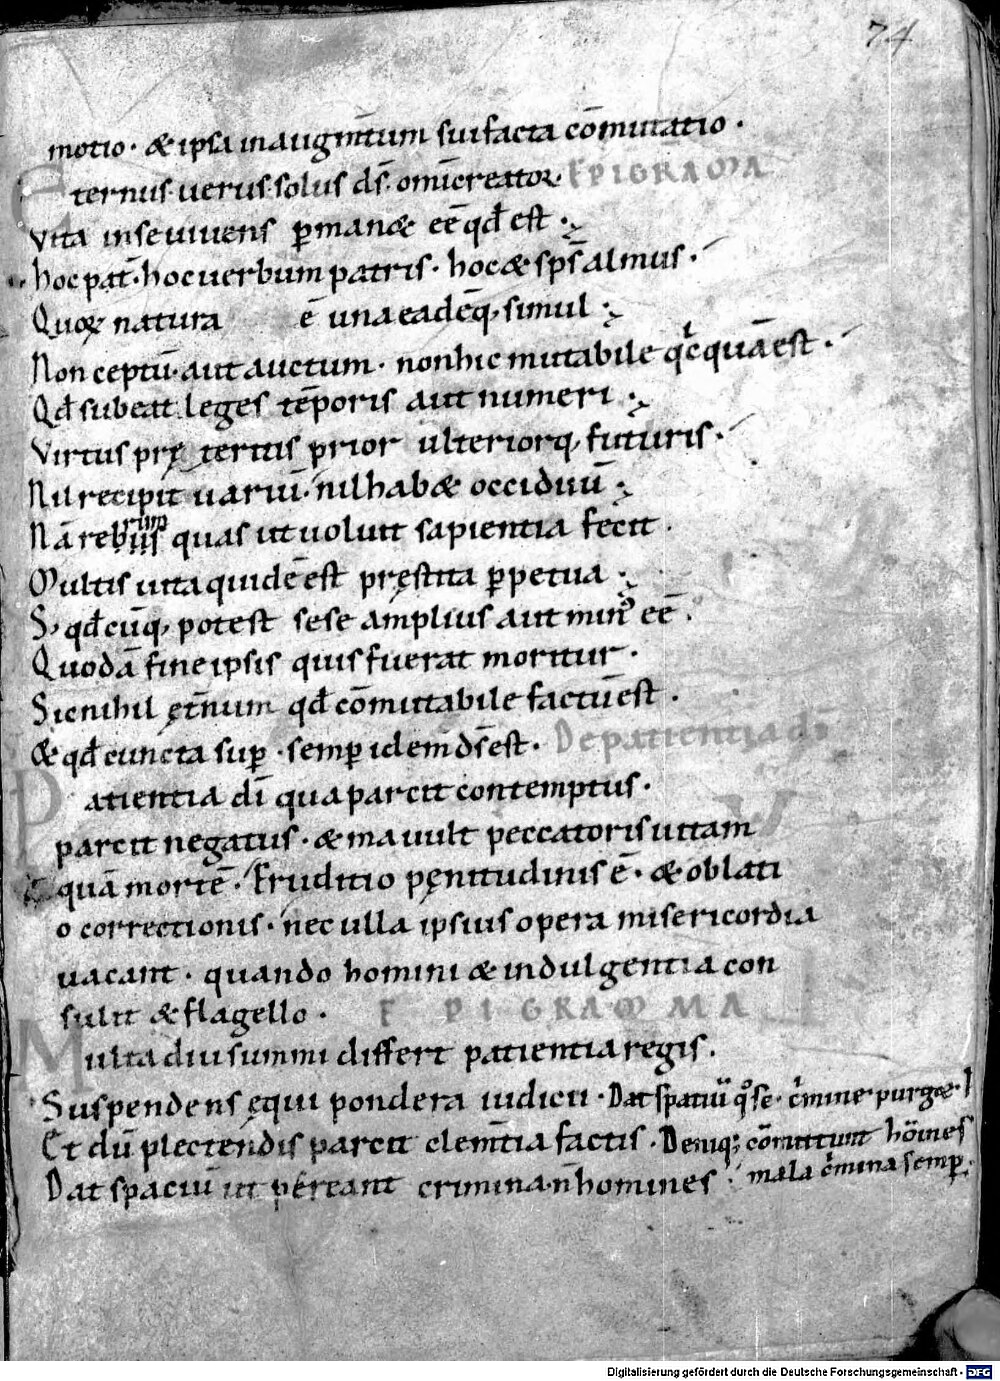 74
motio · & ipsa in augm̄tum sui facta cōmutatio ·
Eternus uerus solus d̄s omīcreator EPIGRAMA
Vita in se uiuens ꝑman& eē qđ est ·
hoc pat̄ · hoc uerbum patris · hoc & sp̄s almus ·
Quoꝝ natura ē una eadēq; simul
Non ceptū · aut auctum · non hic mutabile q̇cquā est ·
Qđ subeat leges tēporis aut numeri
Virtus prę teritis prior ulteriorq; futuris ·
Nil recipit uariū · nil hab& occiduū
Nā rebus quas ut uoluit sapientia fecit ·
Multis uita quidē est pręstita ꝑpetua
S; qđcūq; potest sese amplius aut min᷒ eē ·
Quodā fine ipsis quis fuerat moritur ·
Sic nihil ęt̄num qđ cōmutabile factū est ·
& qđ cuncta suꝑ · semꝑ idem d̄s est · De patientia dī
Patientia dī qua parcit contemptus ·
parcit negatus · & mauult peccatoris uitam
quā mortē · Eruditio pęnitudinis ē · & oblati
o correctionis · nec ulla ipsius opera misericordia
uacant · quando homini & indulgentia con
sulit & flagello · EPIGRAMMA
Multa diu summi differt patientia regis ·
Suspendens ęqui pondera iudicii · Dat spatiū q̊ se c̓mine purg&
Et dū plectendis parcit clem̄tia factis · Deniq; cōmittunt hōines
Dat spaciū ut pereant crimina · n̄ homines mala c̓mina semꝑ
Digitalisierung gefördert durch die Deutsche Forschungsgemeinschaft - DFG